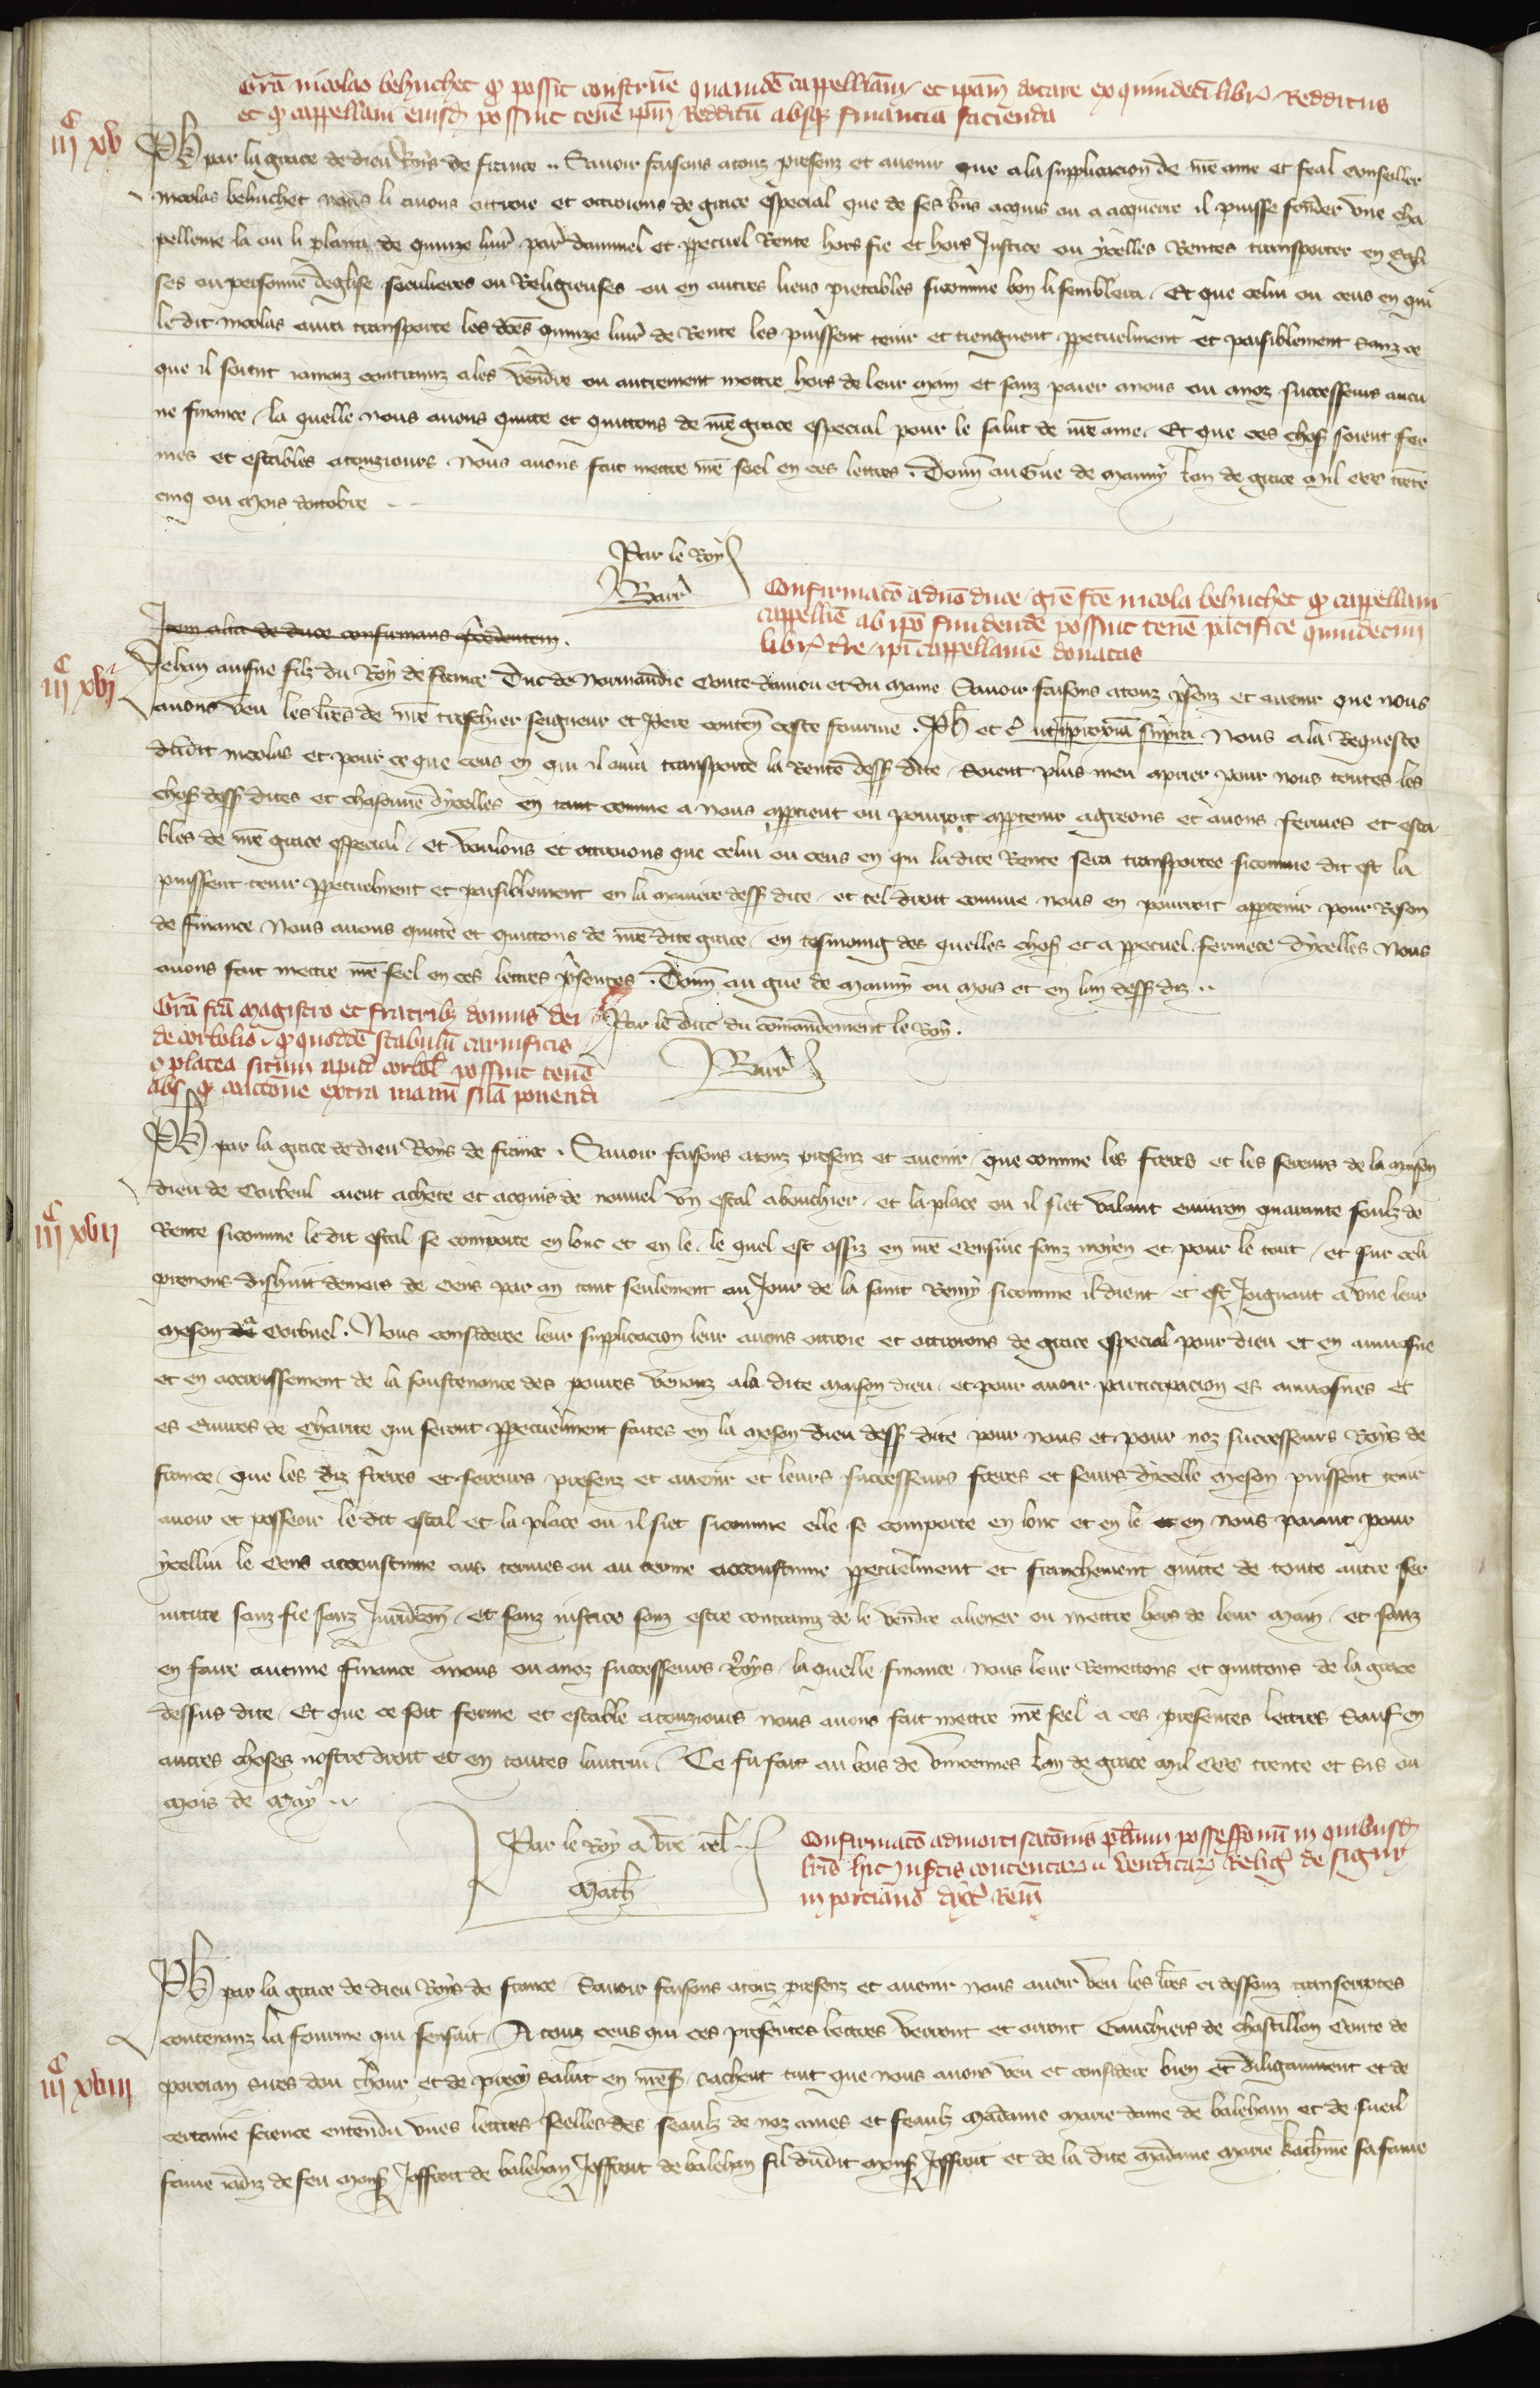 Gra nicolao behuchet q possit construe quamde cappelliam et ipam dotare ex quindeci libr redditus
et q cappellani eiusd possint tene ipm redditu absq financia facienda
iiiC xv
Ph par la grace de dieu Roys de france .. Savoir faisons atouz presenz et avenir que ala supplicacion de nre ame et feal conseiller
nicolas behuchet nous li avons ottroie et ottroions de grace especial que de ses bns acquis ou a acquerre il puisse fonder une cha
pellenie la ou li plaira de quinze livr par dannuel et ppetuel Rente hors fie et hors Justice ou ycelles Rentes transporter en egli
ses ou personne deglise seculieres ou Religieuses ou en autres lieus pietables sicomme bon li semblera. Et que celui ou ceus en qui
le dit nicolas aura transporte les dces quinze livr de Rente les puissent tenir et tiengnent ppetuelment et paisiblement sanz ce
que il soient iamaiz contrainz ales vendre ou autrement mettre hors de leur main et sanz paier anous ou anoz successeurs aucu
ne finance. la quelle nous avons quitte et quittons de nre grace especial pour le salut de nre ame. Et que ces chos soient fer
mes et estables atouziours. Nous avons fait mettre nre seel en ces lettres. Donn au Gue de Mauny lan de grace mil ccc trete
cinq ou mois doctobre
Par le Roy
Barr
Confirmaco a dno duce gre fce nicola behuchet q cappellani
cappellie ab ipo fundende possint tene pacifice quindecim
libr tre ipi cappellanie donatas
Item alia de duce confirmans precedentem.
iiiC xvi
Jehan ausne filz du Roy de france Duc de Normandie Conte daniou et du Maine Savoir faisons atouz psenz et avenir que nous
avons veu les lres de nre treschier seigneur et Pere conten ceste fourme. Ph et c ut in proxia supra Nous ala Requeste
dudit nicolas et pour ce que ceus en qui il aura transporte la Rente dess dite. Soient plus tenu aprier pour nous toutes les
chos dess dites et chascune dycelles en tant comme a nous apptient ou pourroit apptenir agreons et avons fermes et esta
bles de nre grace especial. et voulons et ottroions que celui ou ceus en qui la dite Rente sera transportee sicomme dit est la
puissent tenir ppetuelment et paisiblement en la maniere dess dite. et tel droit comme nous en pourroit apptenir pour Reson
de finance. Nous avons quitte et quittons de nre dite grace. en tesmoing des quelles chos et a ppetuel fermete dycelles Nous
avons fait mettre nre seel en ces lettres psentes. Donn au gue de mauny ou mois et en lan dess diz ..
Par le Duc du commandement le Roy.
Barr
Gra fca magistro et fratrib domus dei
de corbolio. q quodde stabulu carnificis
& platea situm apud corbol possint tene
abs q coactione extra manu sua ponendi
Ph par la grace de dieu Roys de france. Savoir faisons atouz presenz et avenir. que comme les freres et les sereurs de la meson
dieu de Corbeul aient achete et acquis de nouvel un estal abouchier. et la place ou il siet valant environ quarante soulz de
iiiC xvii
Rente sicomme le dit estal se comporte en lonc et en le. le quel est assiz en nre censive sanz moyen et pour le tout. et sur celi
prenons dishuit deniers de cens par an tant seulement au Jour de la saint Remy sicomme il dient. et est Joignant a une leur
meson a Corbuel. Nous consideree leur supplicacion leur avons ottroie et ottroions de grace especial pour dieu et en aumosne
et en accroissement de la soustenance des povres venanz ala dite maison dieu. et pour avoir participacion es aumosnes et
es euvres de Charite qui seront ppetuelment faites en la meson dieu dess dite pour nous et pour noz successeurs Roys de
france. que les diz freres et sereurs presenz et avenir et leurs successeurs freres et seurs dycelle meson puissent tenir
avoir et posseoir le dit estal et la place ou il siet sicomme elle se comporte en lonc et en le et en nous paiant pour
ycellui le Cens accoustume aus termes ou au terme accoustume ppetuelment et franchement quitte de toute autre ser
vitute sanz fie sanz Juridicon. et sanz iustice sanz estre contrainz de le vendre aliener ou mettre hors de leur main. et sanz
en faire aucune finance anous ou anoz successeurs Roys. la quelle finance nous leur Remettons et quittons de la grace
dessus dite. Et que ce soit ferme et estable atouziours nous avons fait mettre nre seel a ces presentes lettres Sauf en
autres choses nostre droit et en toutes lautrui. Ce fu fait au bois de vincennes lan de grace mil ccc trente et sis ou
mois de May ..
Par le Roy a vre rel ..
Math
Confirmaco admortisaconis possessionu in quibusd
de signy
in porciano
Ph par la grace de dieu Roys de france. Savoir faisons atouz presenz et avenir nous avoir veu les lres ci dessouz transcriptes
contenanz la fourme qui sensuit. A touz ceus qui ces presentes lettres verront et orront Gauchiers de chastillon Conte de
iiiC xviii
porcian sires dou thour et de precy salut en nres. sachent tuit que nous avons veu et considere bien et diligamment et de
certaine science entendu unes lettres seellees des seaulz de noz amez et feaulz Madame Marie dame de baleham et de sueil
feme iadiz de feu mons Joffroit de baleham Joffroit de baleham fil dudit mons Joffroit et de la dite Madame Marie Katherine sa fame